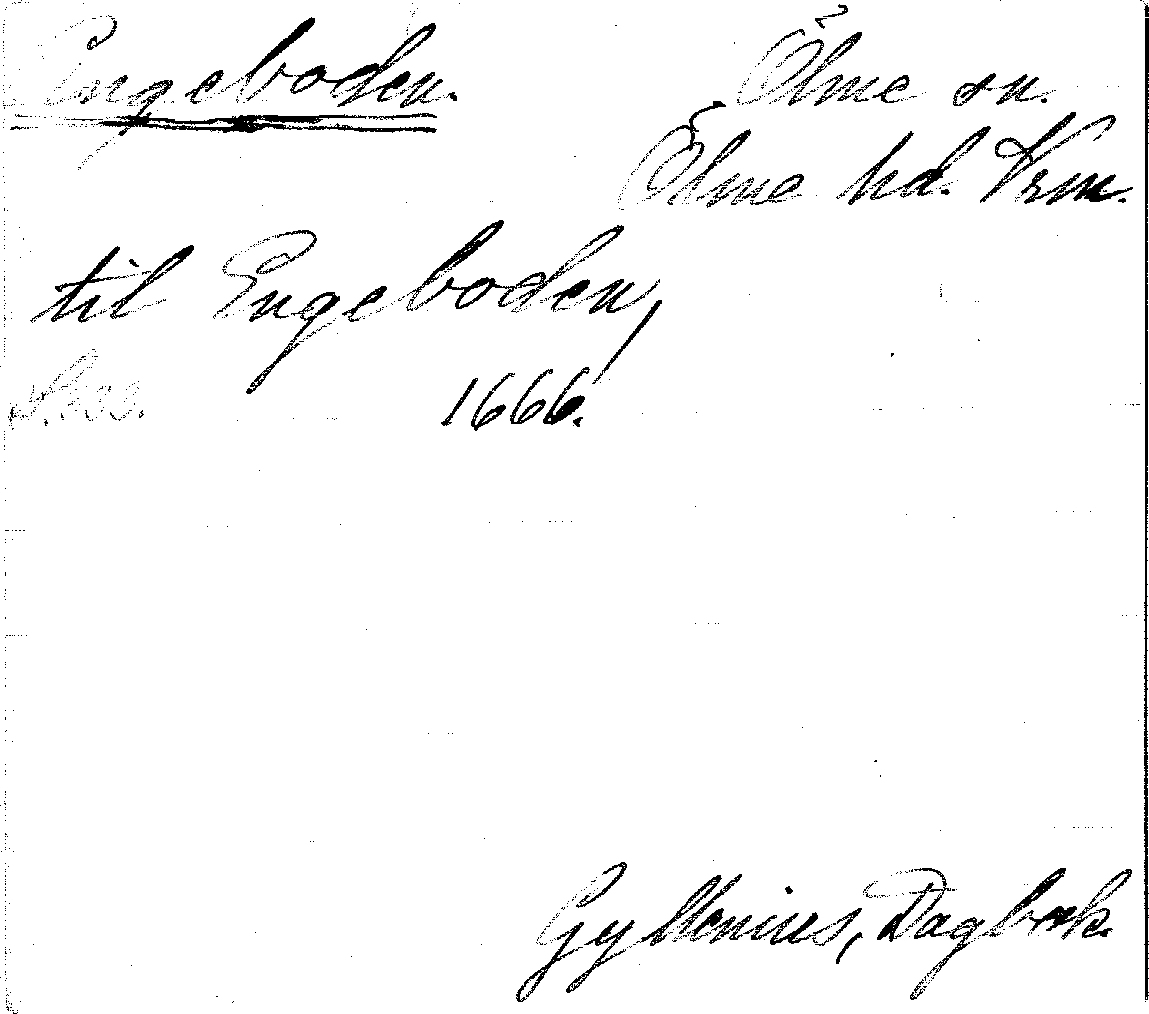 Engeboden.
Ölme sn.
Ölme hd. Vrm.
til Engeboden,
1666.
Gyllenius, Dagbok.